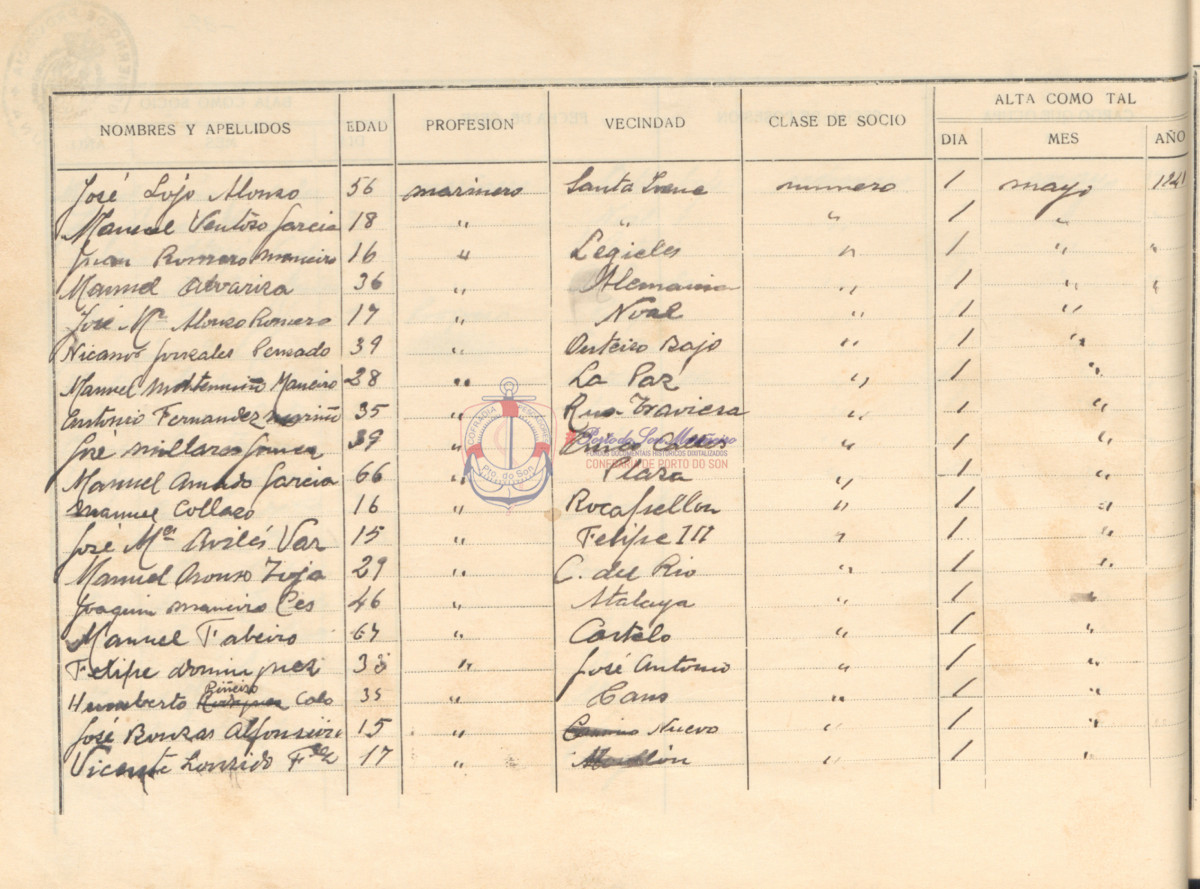 NOMBRES Y APELLIDOS EDAD PROFESION VECINDAD CLASE DE SOCIO ALTA COMO TAL
DIA MES AÑO
José Lojo Alonso 56 marinero Santa Irene numero 1 mayo 1941
Manuel Ventoso Garcia 18 " " " 1 "
Juan Romero Maneiro 16 " " 1 " "
Manuel Alvariza 36 " Alemania " 1 " "
José Mª Alonso Romero 17 " Noal " 1 "
Nicanor Gonzales Pensado 39 " Outeiro Bajo " 1 "
Manuel Maneiro 28 " La Paz " 1 "
Antonio Fernandez Mariño 35 " Rua Traviesa " 1 "
José 39 " " 1 "
Manuel Amado Garcia 66 " Plaza " 1 "
Manuel Collazo 16 " " 1 "
José Mª Avilés Var 15 " Felipe III " 1 "
Manuel 29 " C. del Rio " 1 "
Joaquin Maneiro Ces 46 " Atalaya " 1 "
Manuel Fabeiro 67 " Castelo " 1 "
Felipe Dominguez 38 " José Antonio " 1 "
Piñeiro
Humberto Rodriguez Colo 35 " Cans " 1 "
José Bouzas 15 " Camino Nuevo " 1 "
Vicente 17 " " 1 "
COFRADIA PESCADORES
Pto. do Son
Porto do Son Mariñeiro
FONDOS DOCUMENTAIS HISTORICOS DIXITALIZADOS
CONFRARIA DE PORTO DO SON